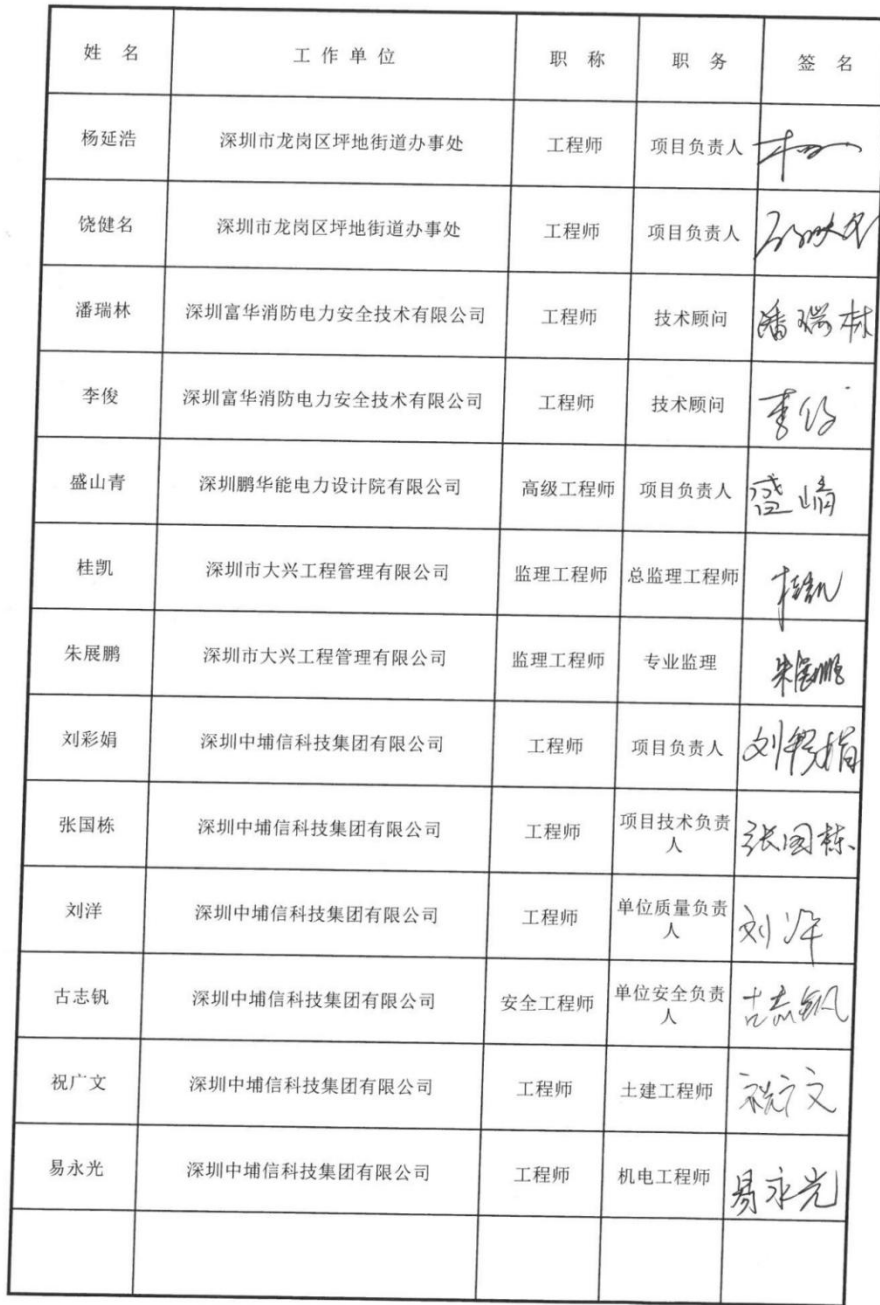 姓 名 工 作 单 位 职 称 职 务 签 名
杨延浩 深圳市龙岗区坪地街道办事处 工程师 项目负责人
饶健名 深圳市龙岗区坪地街道办事处 工程师 项目负责人
潘瑞林 深圳富华消防电力安全技术有限公司 工程师 技术顾问 潘瑞林
李俊 深圳富华消防电力安全技术有限公司 工程师 技术顾问 李俊
盛山青 深圳鹏华能电力设计院有限公司 高级工程师 项目负责人 盛山青
桂凯 深圳市大兴工程管理有限公司 监理工程师 总监理工程师 桂凯
朱展鹏 深圳市大兴工程管理有限公司 监理工程师 专业监理 朱展鹏
刘彩娟 深圳中埔信科技集团有限公司 工程师 项目负责人 刘彩娟
张国栋 深圳中埔信科技集团有限公司 工程师 项目技术负责 张国栋
人
刘洋 深圳中埔信科技集团有限公司 工程师 单位质量负责 刘洋
人
古志钒 深圳中埔信科技集团有限公司 安全工程师 单位安全负责 古志钒
人
祝广文 深圳中埔信科技集团有限公司 工程师 土建工程师 祝广文
易永光 深圳中埔信科技集团有限公司 工程师 机电工程师 易永光